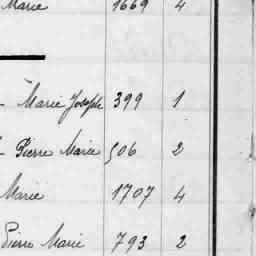 Marie 1669 4
- Marie Joseph 399 1
- Pierre Marie 506 2
Marie 1707 4
Pierre Marie 793 2